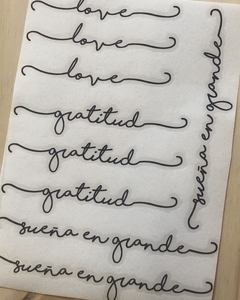 love
love
love
gratitud
gratitud
gratitud
sueña en grande
sueña en grande
sueña en grande